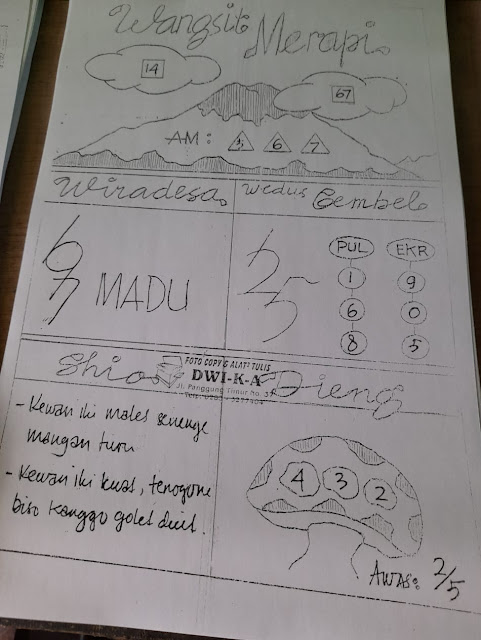 Wangsit Merapi
14
67
AM: 1 6 7
Wiradesa
MADU
Wedus Gembel
PUL EKR
1 9
6 0
8 5
Shio
FOTO COPY & ALAT² TULIS
DWI-K-A
Jl. Panggung Timur no.
Dieng
- Kewan iki males senenge
mangan turu
- Kewan iki kuat, tenogone
biso kanggo golet duit.
4 3 2
AWAS: 2/5